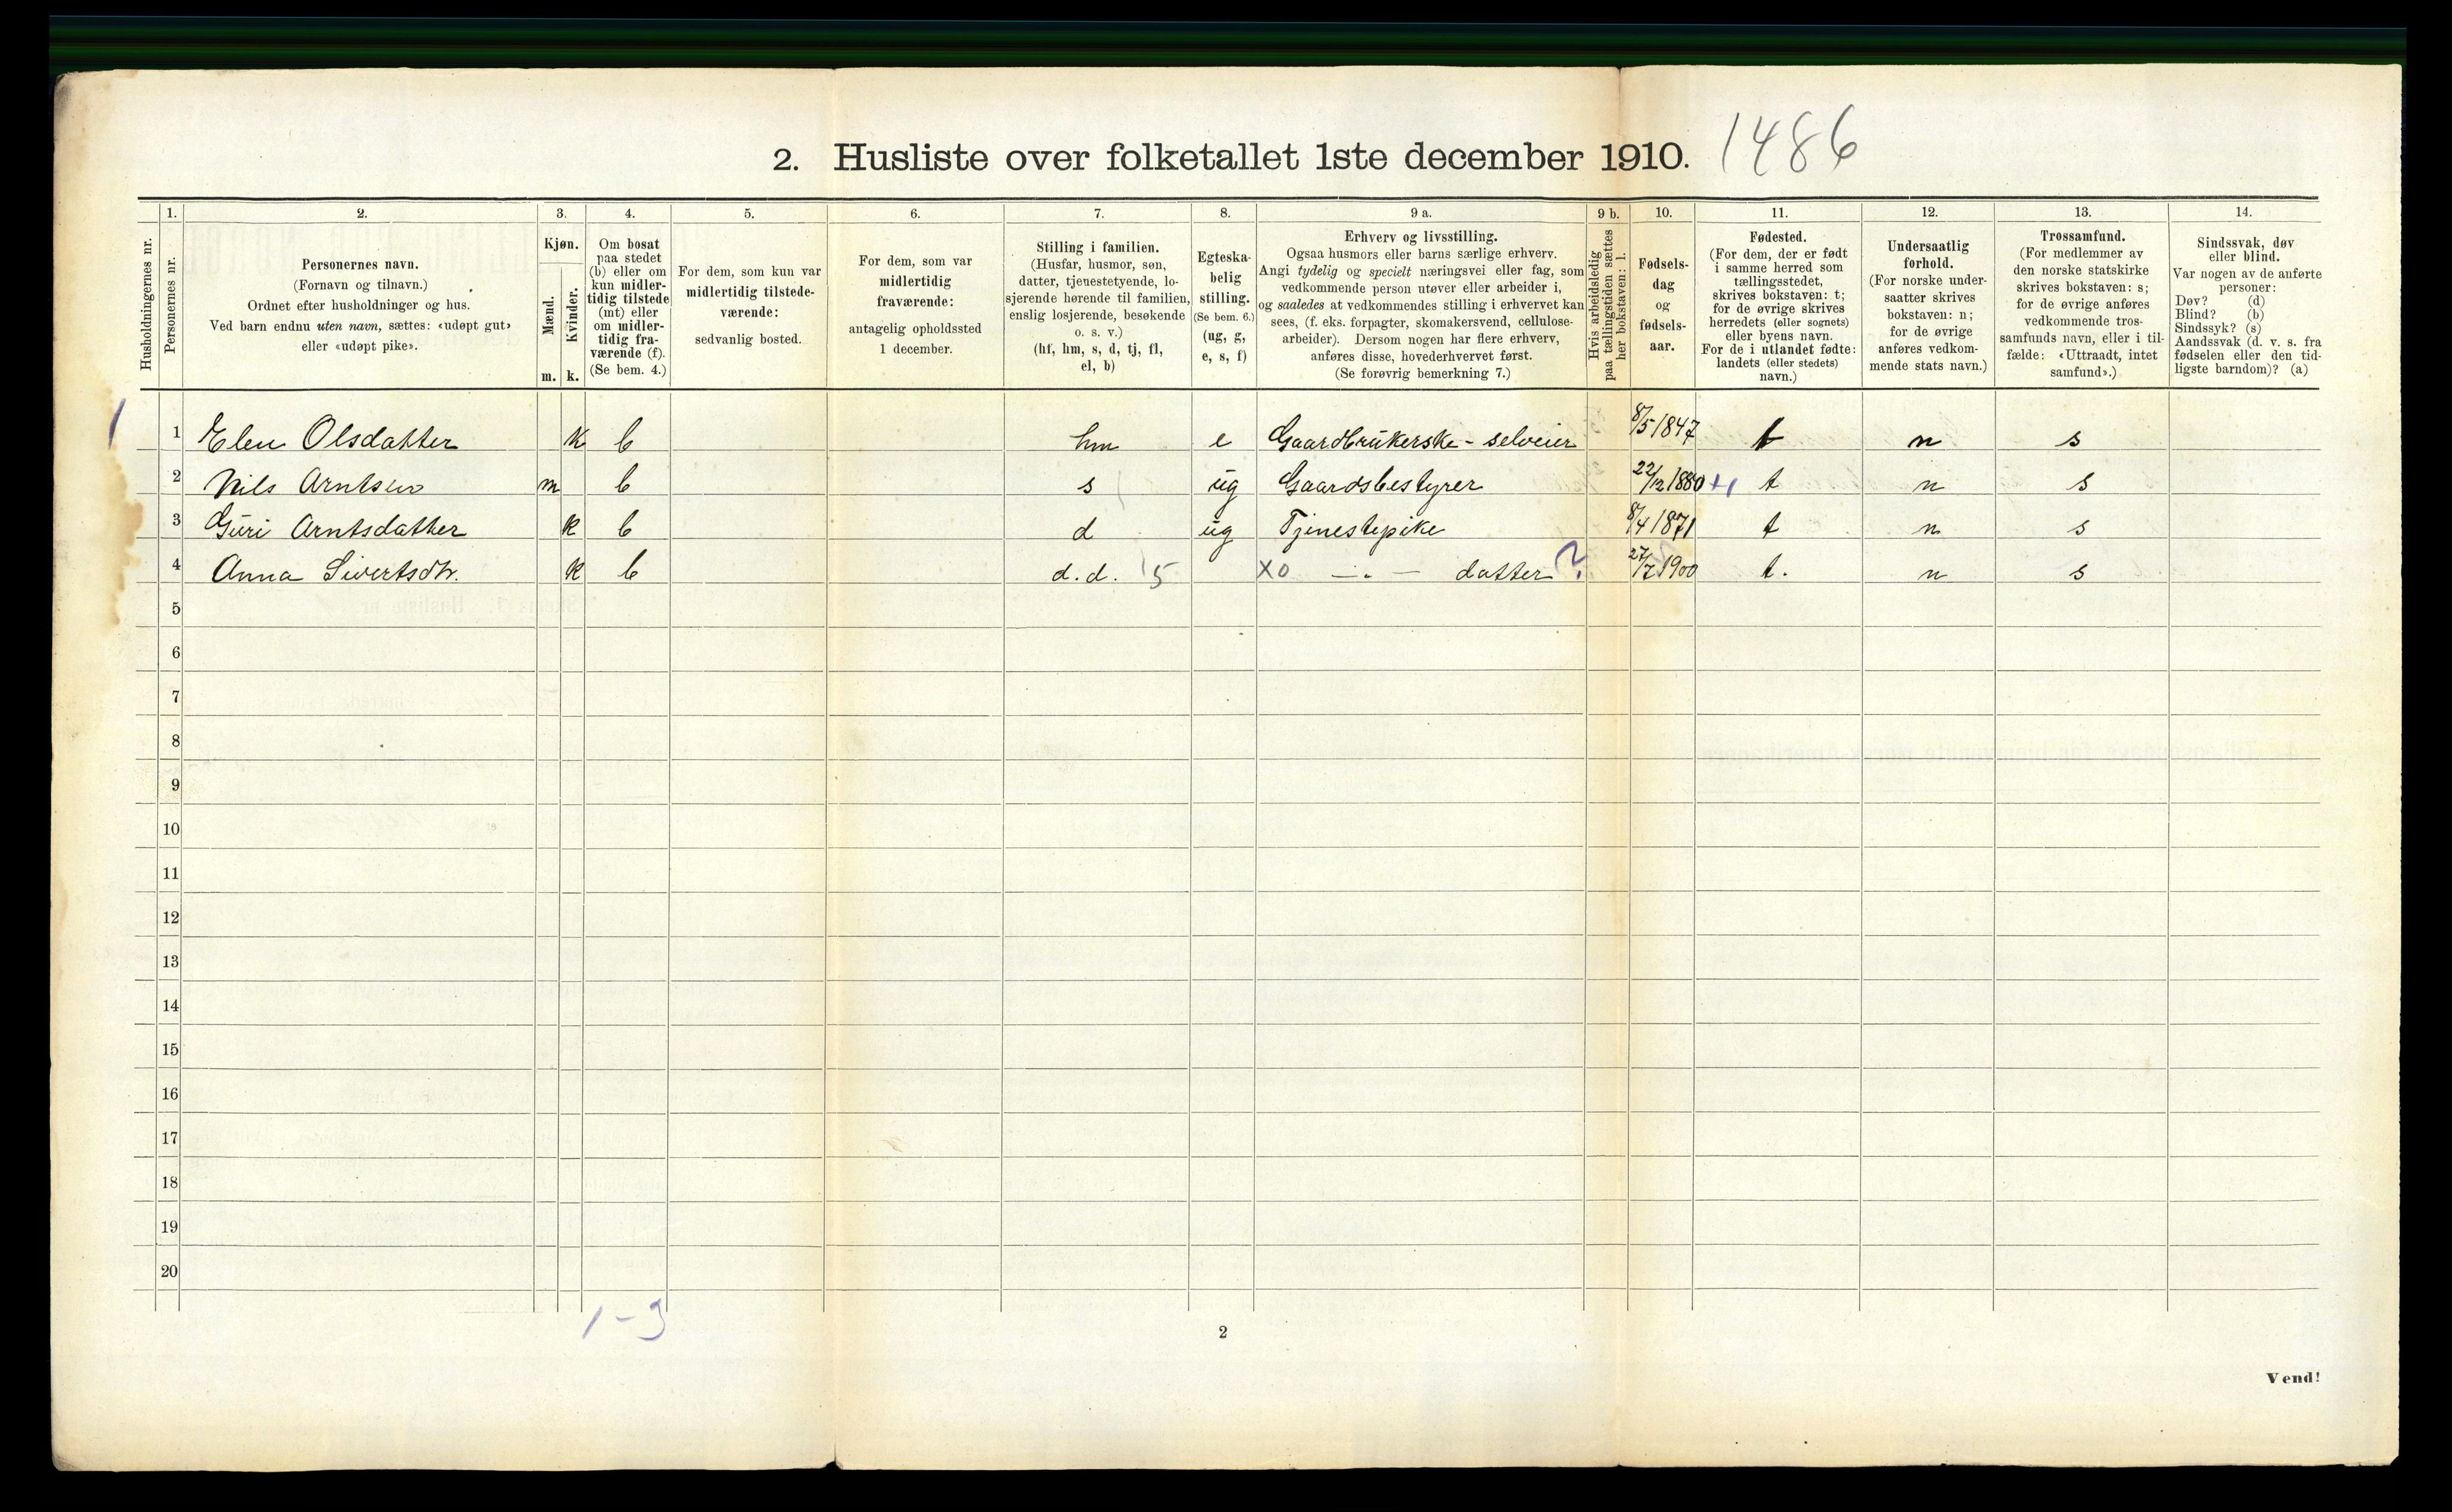 2. Husliste over folketallet 1ste december 1910. 1486
Husholdningernes nr.
1.
Personernes nr.
2.
Personernes navn.
(Fornavn og tilnavn.)
Ordnet efter husholdninger og hus.
Ved barn endnu uten navn, sættes: «udøpt gut»
eller «udøpt pike».
3.
Kjøn.
Mænd.
Kvinder.
m. k.
4.
Om bosat
paa stedet
(b) eller om
kun midler-
tidig tilstede
(mt) eller
om midler-
tidig fra-
værende (f).
(Se bem. 4.)
5.
For dem, som kun var
midlertidig tilstede-
værende:
sedvanlig bosted.
6.
For dem, som var
midlertidig
fraværende:
antagelig opholdssted
1 december.
7.
Stilling i familien.
(Husfar, husmor, søn,
datter, tjenestetyende, lo-
sjerende hørende til familien,
enslig losjerende, besøkende
o. s. v.)
(hf, hm, s, d, tj, fl,
el, b)
8.
Egteska-
belig
stilling.
(Se bem. 6.)
(ug, g,
e, s, f)
9 a.
Erhverv og livsstilling.
Ogsaa husmors eller barns særlige erhverv.
Angi tydelig og specielt næringsvei eller fag, som
vedkommende person utøver eller arbeider i,
og saaledes at vedkommendes stilling i erhvervet kan
sees, (f. eks. forpagter, skomakersvend, cellulose-
arbeider). Dersom nogen har flere erhverv,
anføres disse, hovederhvervet først.
(Se forøvrig bemerkning 7.)
9 b.
Hvis arbeidsledig
paa tællingstiden sættes
her bokstaven: l.
10.
Fødsels-
dag
og
fødsels-
aar.
11.
Fødested.
(For dem, der er født
i samme herred som
tællingsstedet,
skrives bokstaven: t;
for de øvrige skrives
herredets (eller sognets)
eller byens navn.
For de i utlandet fødte:
landets (eller stedets)
navn.)
12.
Undersaatlig
forhold.
(For norske under-
saatter skrives
bokstaven: n;
for de øvrige
anføres vedkom-
mende stats navn.)
13.
Trossamfund.
(For medlemmer av
den norske statskirke
skrives bokstaven: s;
for de øvrige anføres
vedkommende tros-
samfunds navn, eller i til-
fælde: «Uttraadt, intet
samfund».)
14.
Sindssvak, døv
eller blind.
Var nogen av de anførte
personer:
Døv? (d)
Blind? (b)
Sindssyk? (s)
Aandssvak (d. v. s. fra
fødselen eller den tid-
ligste barndom)? (a)
1 1 Elen Olsdatter k b hm e Gaardbrukerske - selveier 8/5 1847 t n s
2 Nils Arntsen m b s ug Gaardsbestyrer 22/12 1880 t n s
3 Guri Arntsdatter k b d ug Tjenestepike 8/4 1871 t n s
4 Anna Sivertsdtr. k b d.d. 5 XO —„— datter ? 27/7 1900 t. n s
5
6
7
8
9
10
11
12
13
14
15
16
17
18
19
20
1 - 3
2
Vend!